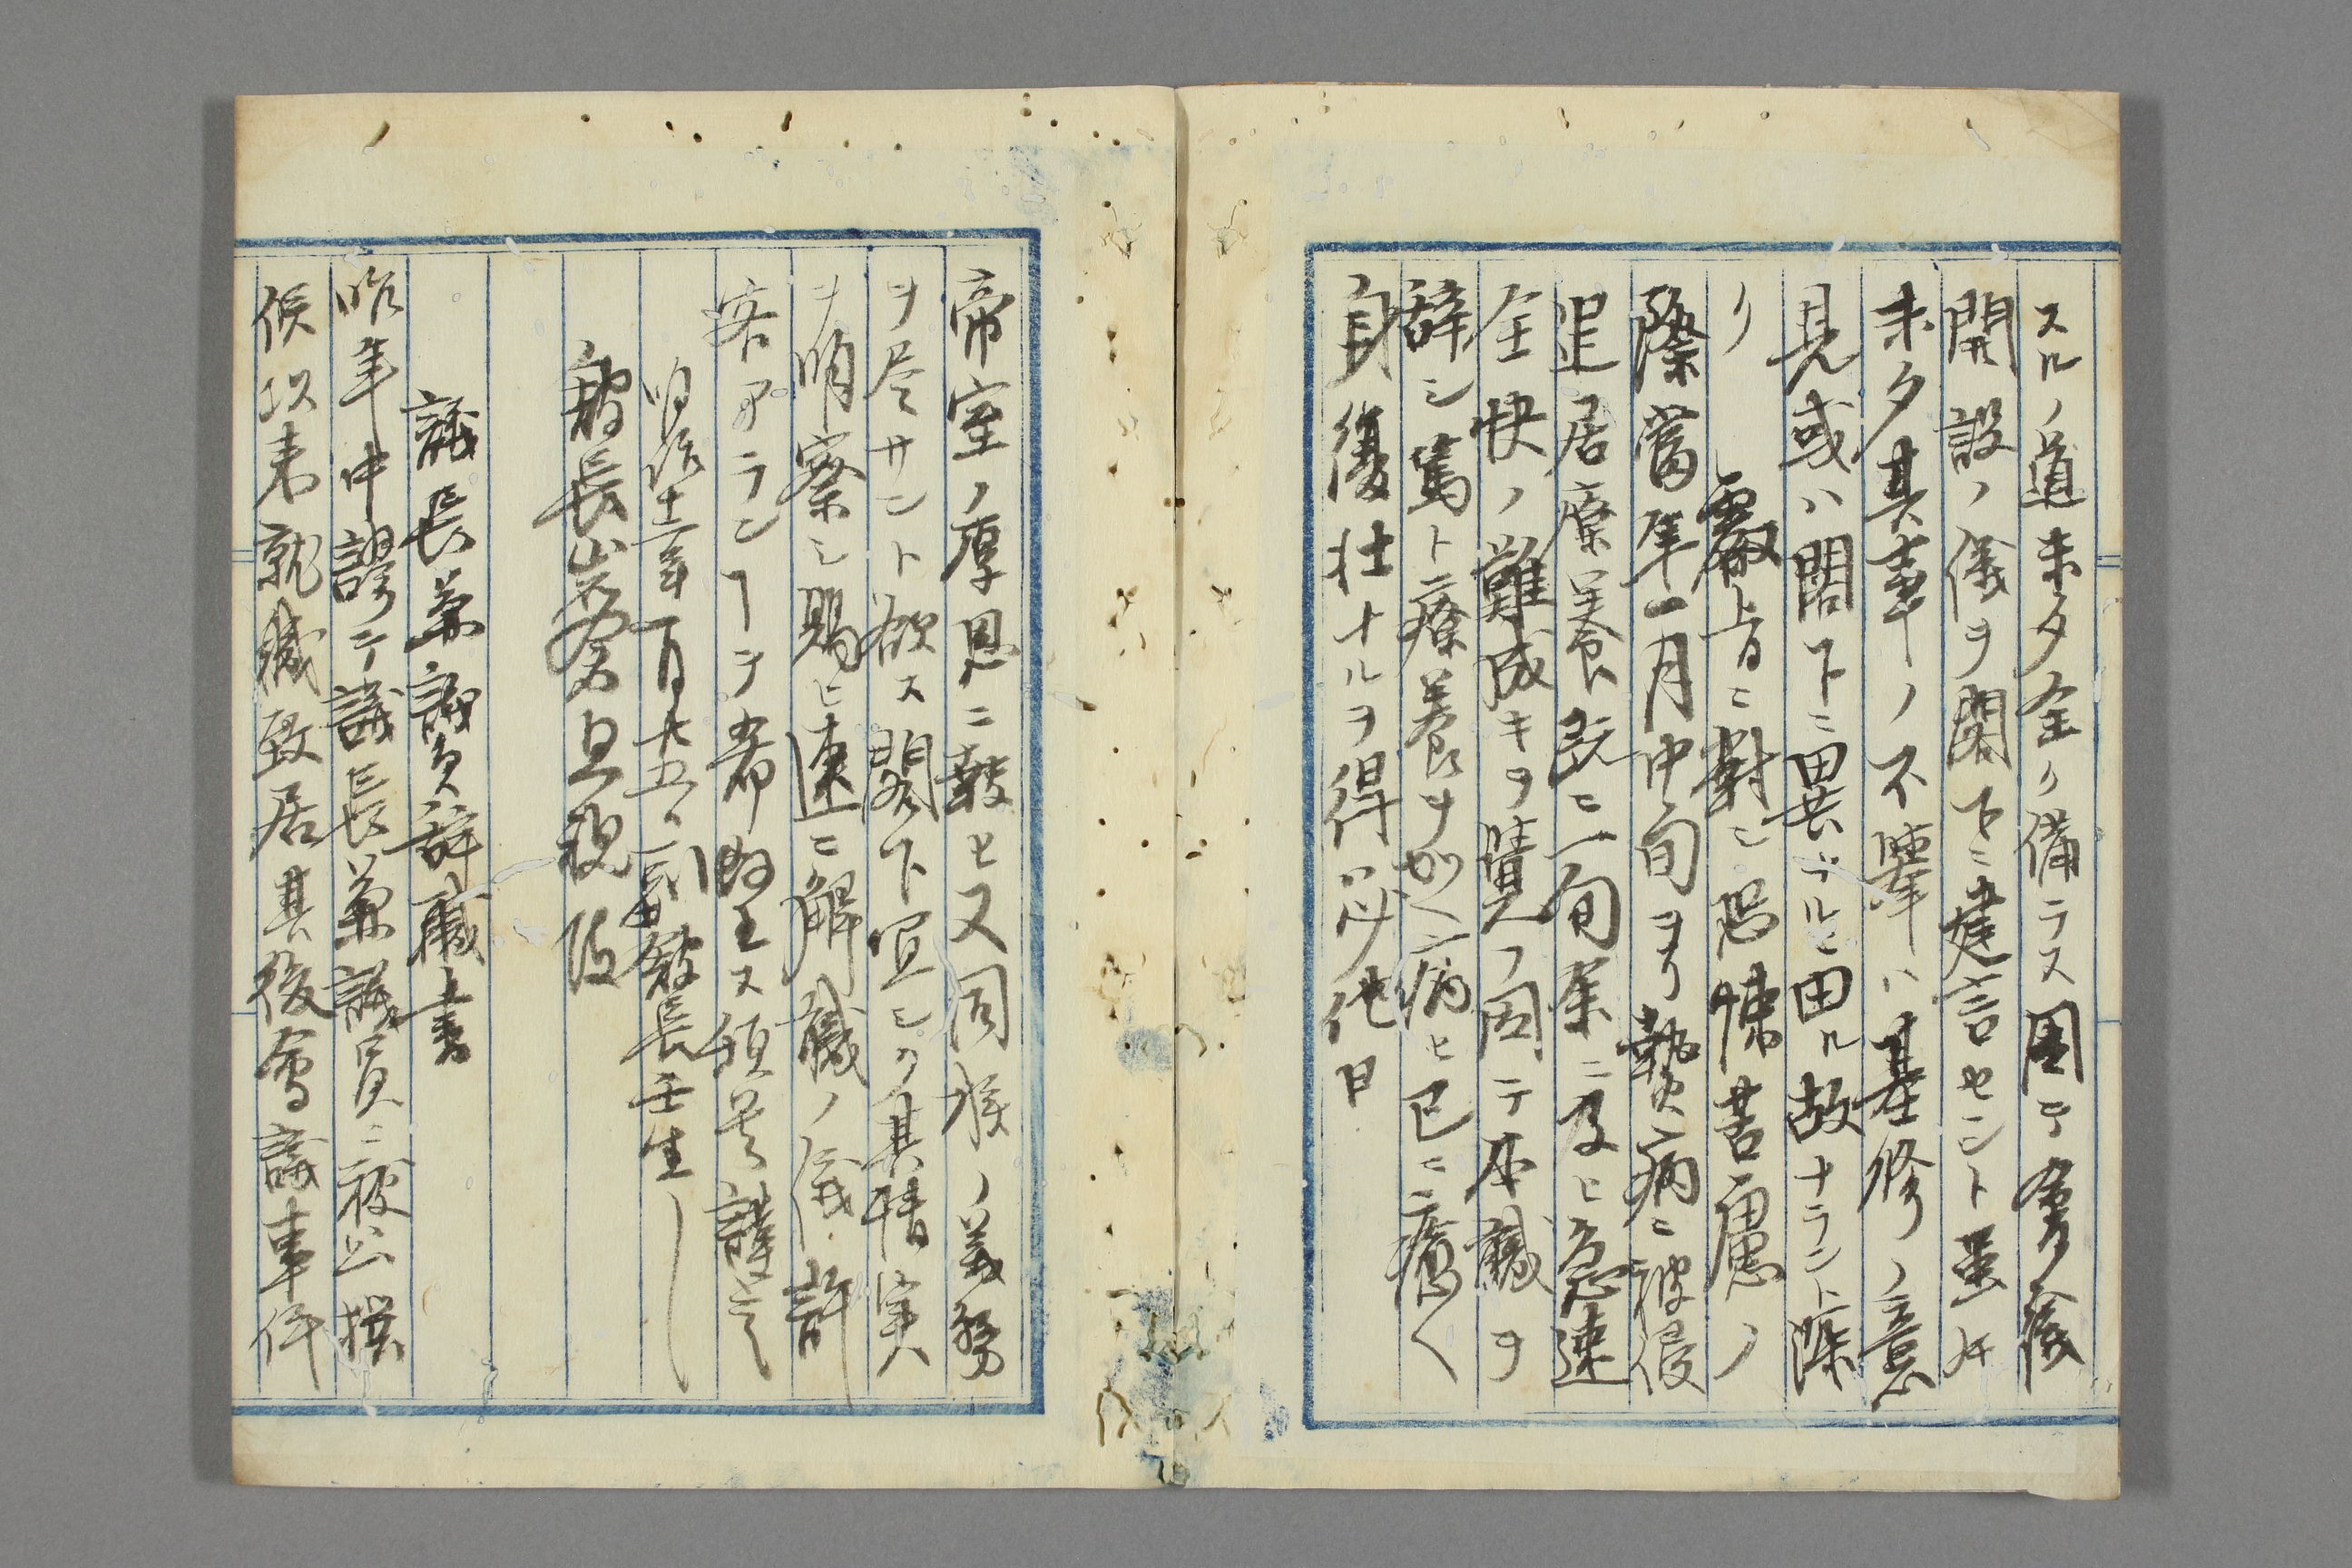 スルノ道未タ全ク備ラス因テ
開設ノ儀ヲ閣下ニ建言セント雖𪜈
未タ其事ノ不畢ハ基修ノ意
見或ハ閣下ニ異ナルニ由ル故ナラント深
ク叡旨ニ對シ恐悚苦慮ノ
際當年一月中旬ヨリ熱病ニ被侵
退居療養既ニ二旬余ニ及ヒ急速
全快ノ難成キヲ覺フ因テ本職ヲ
辞シ篤ト療養ヲ加ヘ病ヒ已ニ癒ヘ
身復壮ナルヲ得ハ必ス他日
帝室ノ厚恩ニ報ヒ又同族ノ義務
ヲ尽サント欲ス閣下宜シク其情実
ヲ明察シ賜ヒ速ニ解職ノ儀許
容アランヿヲ希望ス頓首謹言
明治十二年二月十五日 副館長壬生
館長岩倉具視殿
議長兼議員辞職書
昨年中謬テ議長兼議員ニ被公撰
候以来就職致居其後會議事件